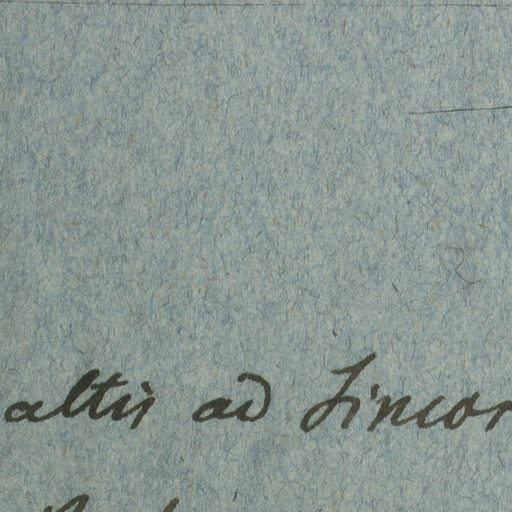 altis ad Lincor